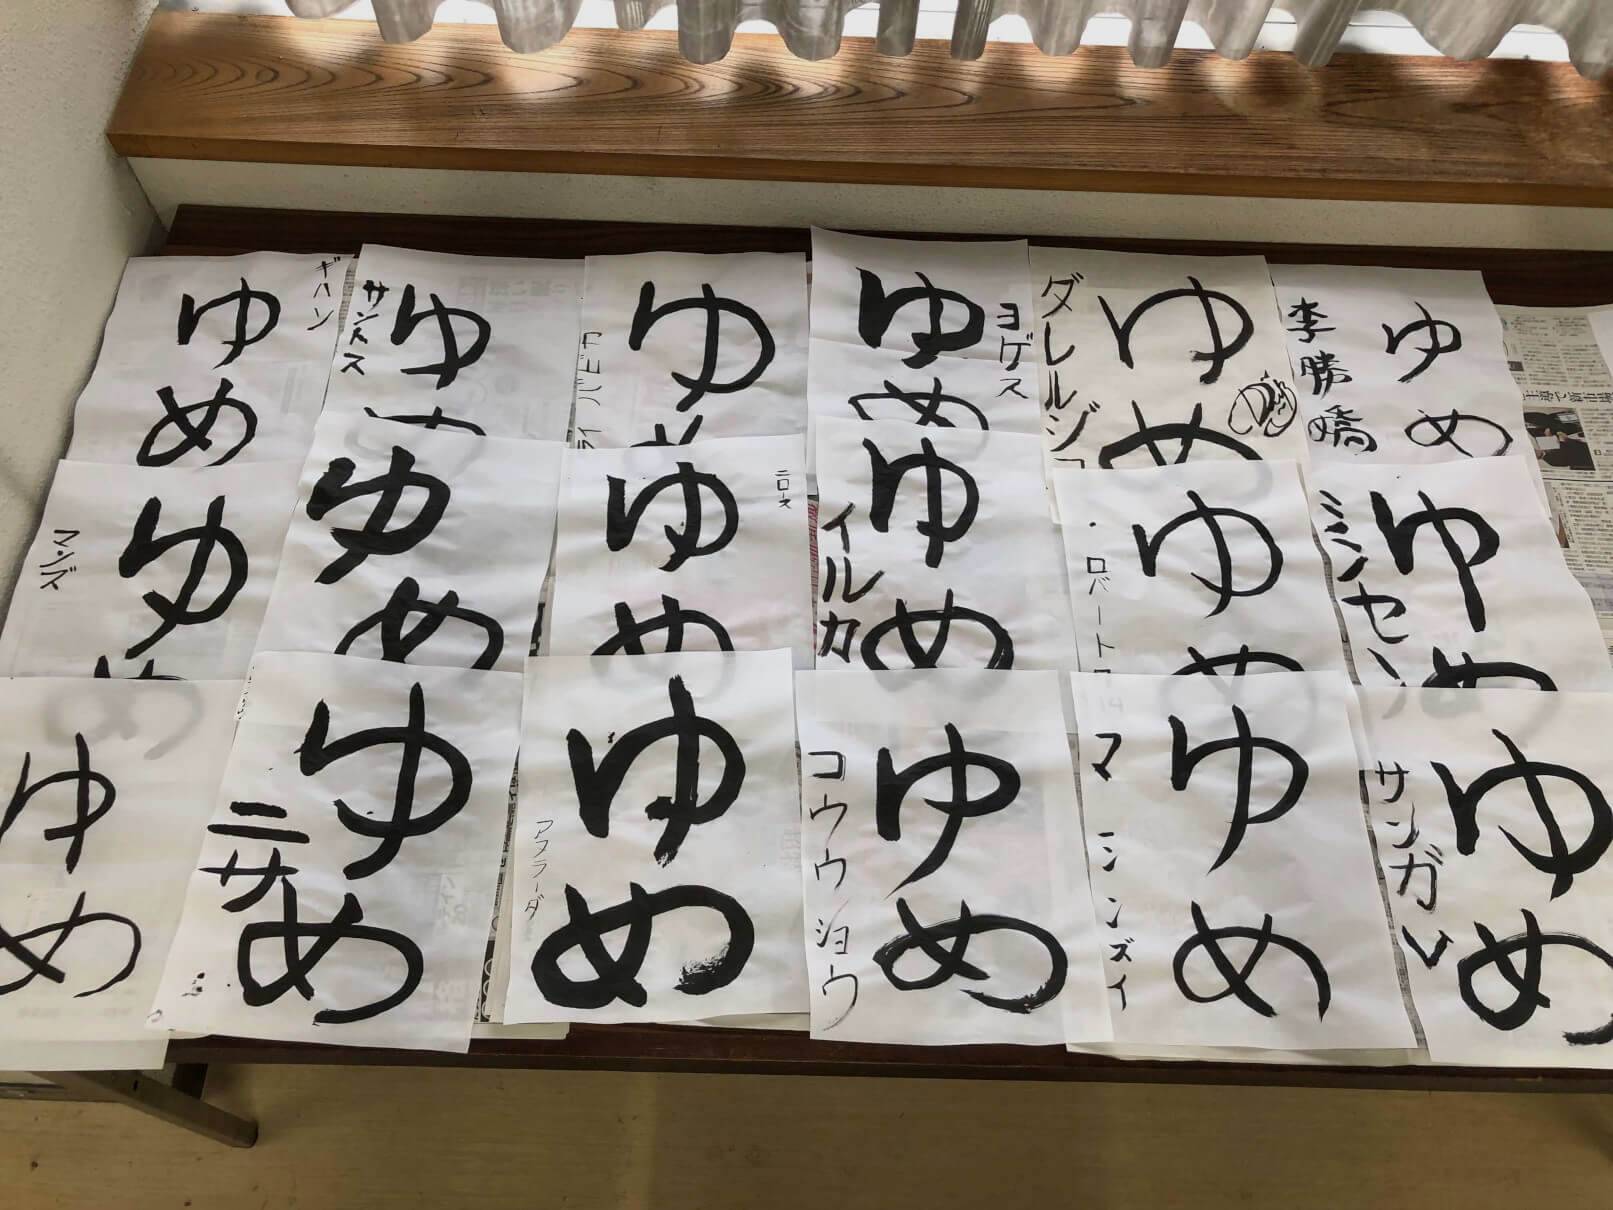 ゆめ
ギハン
ゆ
サントス
ゆめ
ゆめ
ヨゲス
ゆめ
ダレルジョ
ゆめ
李勝嬌
ゆめ
マンズ
ゆめ
ゆめ
ニロース
ゆめ
イルカ
ゆめ
ロバート
ゆめ
ミンセン
ゆめ
ゆめ
ニサ
ゆめ
アフラーダ
ゆめ
コウウショウ
ゆめ
マシンズイ
ゆめ
サンガレ